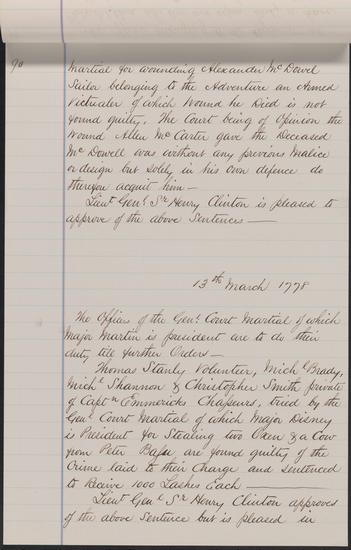 90
Martial for wounding Alexander Mc Dowel
Sailor belonging to the Adventure an Armed
Victualer of which Wound he Died is not
found guilty. The Court being of Opinion the
Wound Allen Mc Carter gave the Deceased
Mc Dowell was without any previous Malice
or design but solely in his own defence do
therefore acquit him —
Lieut Genl Sr Henry Clinton is pleased to
approve of the above Sentences —
13th March 1778
The Officers of the Genl Court Martial of which
Major Martin is president are to do their
duty till further Orders —
Thomas Stanly Volunteer, Michl Brady,
Michl Shannon & Christopher Smith private
of Captn Emmericks Chasseurs, tried by the
Genl Court Martial of which Major Disney
is President for Stealing two Oxen & a Cow
from Peter are found guilty of the
Crime laid to their Charge and sentenced
to Receive 1000 Lashes Each —
Lieut Genl Sr Henry Clinton approves
of the above Sentence but is pleased in